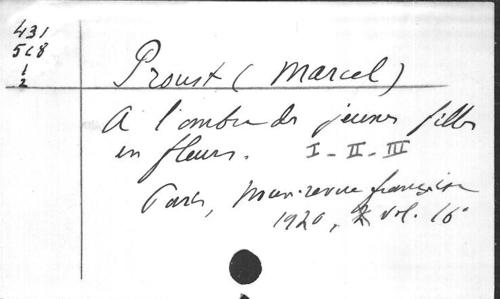 431
518
1
2
Proust (Marcel)
A l'ombre des jeunes filles
en fleurs. I - II - III
Paris, Nouv. revue française
1920, 2 vol. 16°